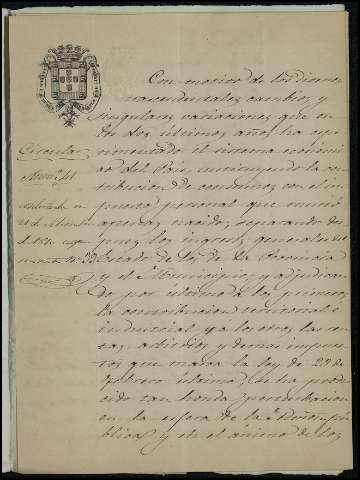 Con motivo de los diversos
trascendentales cambios y
singulares variaciones que en
los dos últimos años ha espe
rimentado el sistema económi
co del País, sustituyendo la con
tribucion de consumos con el im
puesto personal que murió
apenas nacido; separando des
pues los ingresos generales del
Estado de los de la Provincia
y el Municipio, y adjudican
do por último á los primeros
la contribucion territorial é
industrial y á los otros las ren
tas, arbitrios y demas impues
tos que marca la ley de 23 de
Febrero último, se ha produ
cido tan honda perturbacion
en la esfera de la Admon pú
blica, y en el ánimo de los
Circular
Núm. 41
de 1870